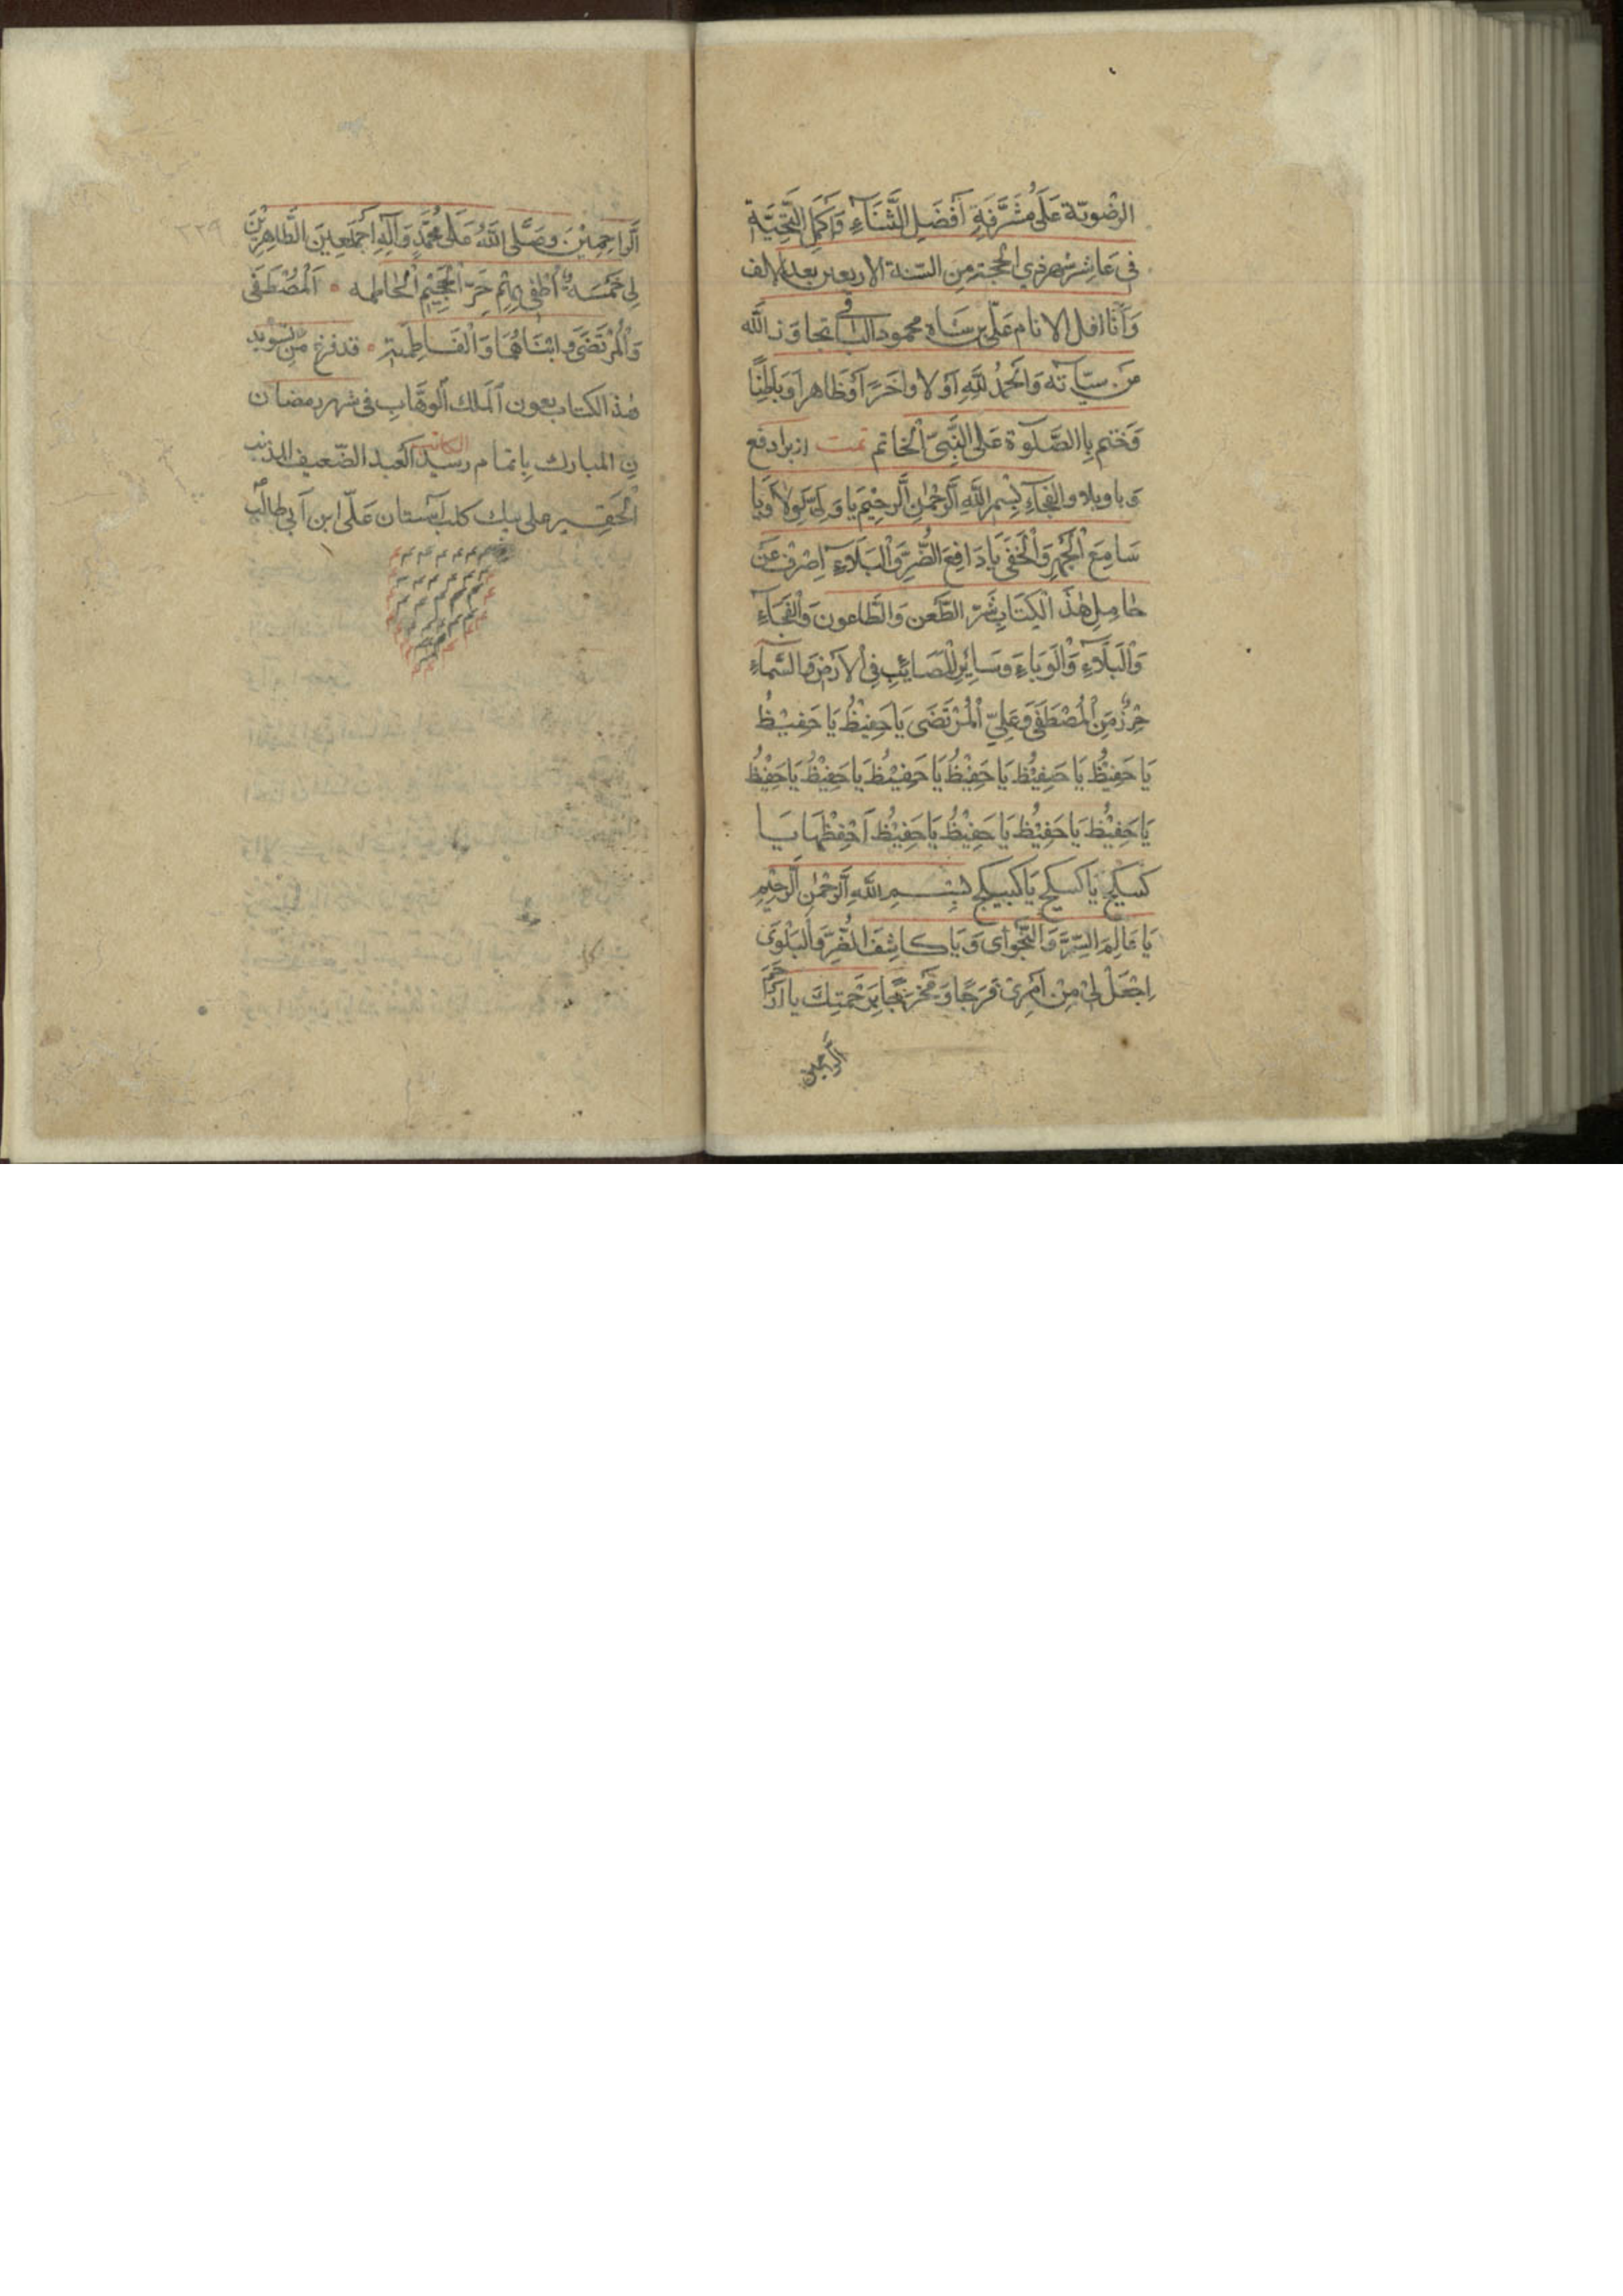 الرضویّة عَلَی مُشَرَّفَةِ اَفْضَلِ الثَّنَآءِ وَاَکْمَلِ التَّحِیَّة
فی عَاشِر شهر ذی الحجّة مِنَ السّنة الاربعین بعد الالف
وَاَنَا اقل الانام عَلّی بن شاه محمود البافی تجاوَز اللّه
مَن سیّاٰته وَالْحَمْدُ لِلّهِ اَوّلاً واٰخَرًا وَظَاهِراً وَبَاطِنًا
فَختم بِاالصَّلَوة عَلی النَّبِیّ الْخاتم تمت از برا دفع
وَبا وبلا و الفجآءِ بِسْمِ اللّهِ اَلرّحْمٰنِ اَلرَّحِیْمِ یا وَلِیَّ اَلْوِلاَ وَیَا
سَامِعَ الْجَهْرِ وَالْخَفَی یَا دَافِعَ الضُّرِّ وَالْبَلَآءِ اِصْرِفْ عَنْ
حٰامِلِ هٰذَ الْکِتَابِ شَرّ الطَّعن وَالطّاعون وَالْفَجَآءِ
وَالْبَلَآءِ وَالْوَبَاءِ وَسَایِرِ الْمَصَائِبِ فِی الاَرْضِ وَالسَّمَآءِ
حِرْزٌ مِنَ الْمُصْطَفَی وَعَلِیِّ الْمُرْتَضَی یَا حَفِیْظُ یَا حَفِیْظُ
یَا حَفِیْظُ یَا حَفِیْظُ یَا حَفِیْظُ یَا حَفِیْظُ یَا حَفِیْظُ یَا حَفِیْظُ
یَا حَفِیْظُ یَا حَفِیْظُ یَا حَفِیْظُ یَا حَفِیْظُ اَحْفِظْهَا یَا
کَبیکج یَا کَبیکج یَا کَبیکج بِسْمِ اللّهِ اَلرّحْمٰنِ اَلرّحِیْمِ
یَا عَالِمَ السِّرِّ وَالنَّجْوای وَیَا کَاشِفَ الضُّرِّ وَالْبَلْوَی
اِجْعَلْ لِیْ مِنْ اَمْرِیْ فَرَجًا وَمَخْرَجًا بِرَحْمَتِكَ یا اَرْحَمَ
الرّاحمین
٣٢٩
اَلرّاحِمِیْنَ وصَلَّی اللّهُ عَلَی مُحَمَّدٍ وَاٰلِهِ اَجْمَعِینَ الطّاهِرِیْنَ
لِی خَمْسَةٌ اُطْفِی بِهِمْ حَرّ الْجَحِیْمِ الْحٰاطِمه اَلْمُصْطَفَی
وَالْمُرْتَضَی وابْنَاهُمَا وَالْفَاطِمَة قد فرغ مِن تسوید
هٰذ الکتاب بعون اَلْمَلك اَلْوهَّاب فی شهر رمضان
نِ المبارك بِاتمام رسید الکاتب العبد الضّعیف المذنب
الْحَقیر علی بیك کلب آستان عَلّی ابن اَبی طالب